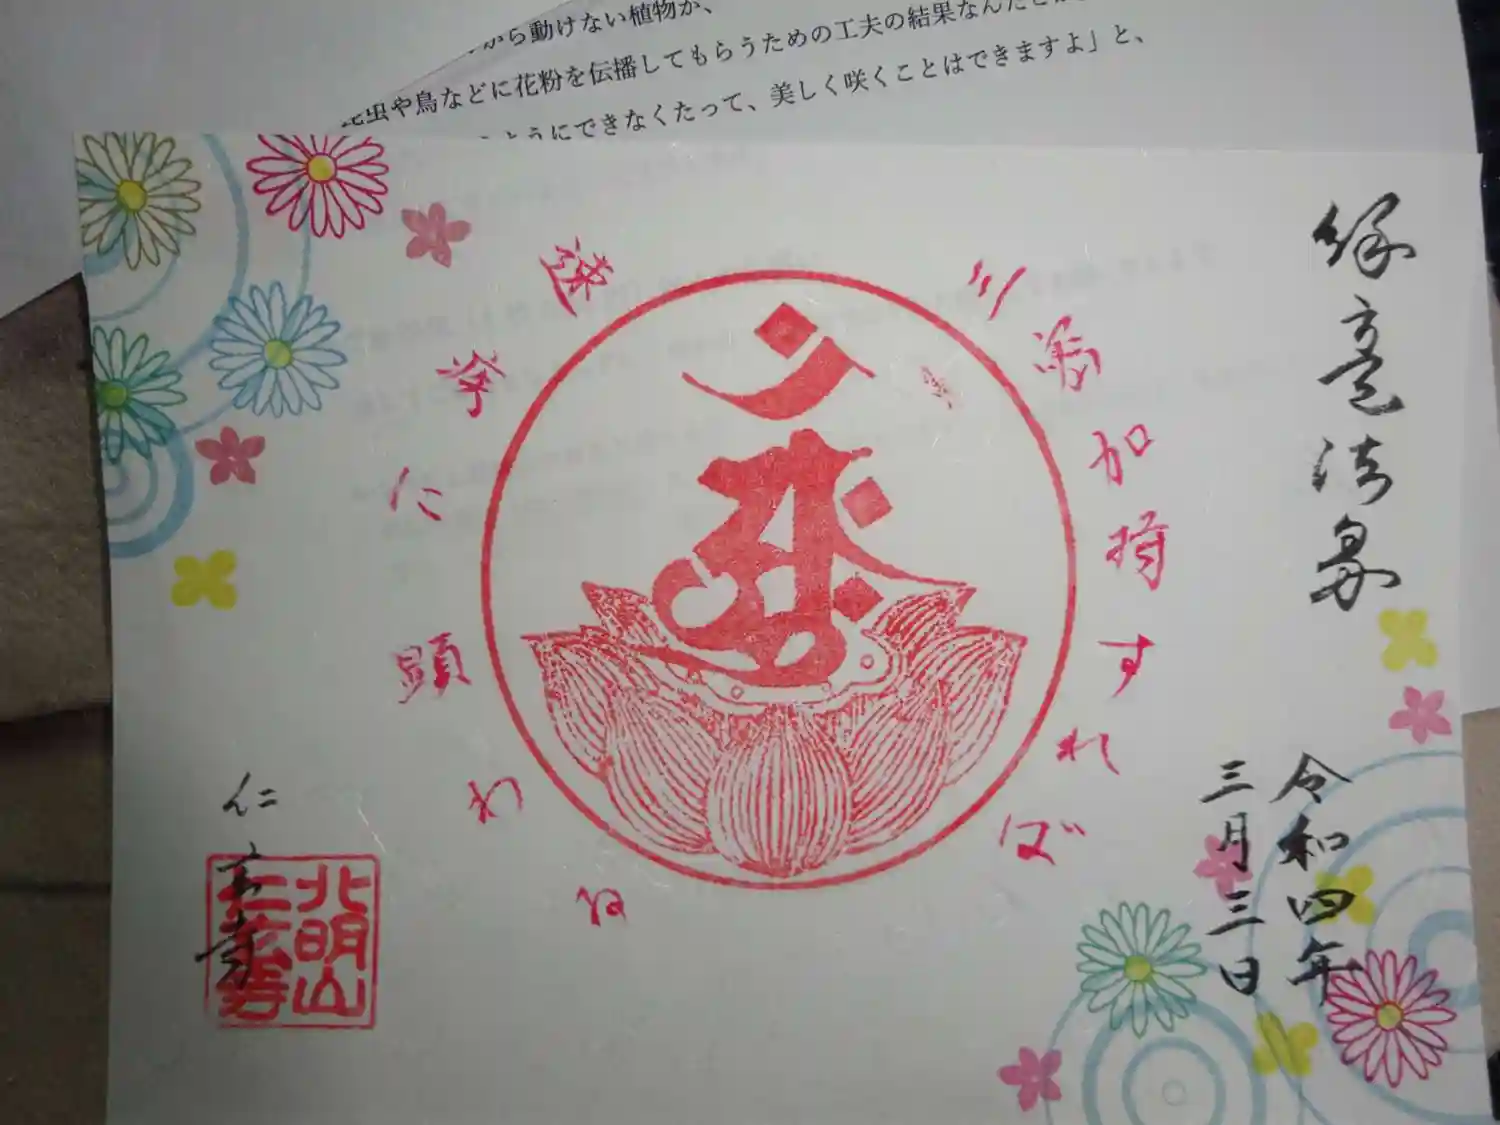 から動けない植物が、
昆虫や鳥などに花粉を伝播してもらうための工夫の結果なんだとか
ようにできなくたって、美しく咲くことはできますよ」と、
令和四年
三月三日
三密加持すれば
速疾に顕わる
仁玄寺
北明山
仁玄寺